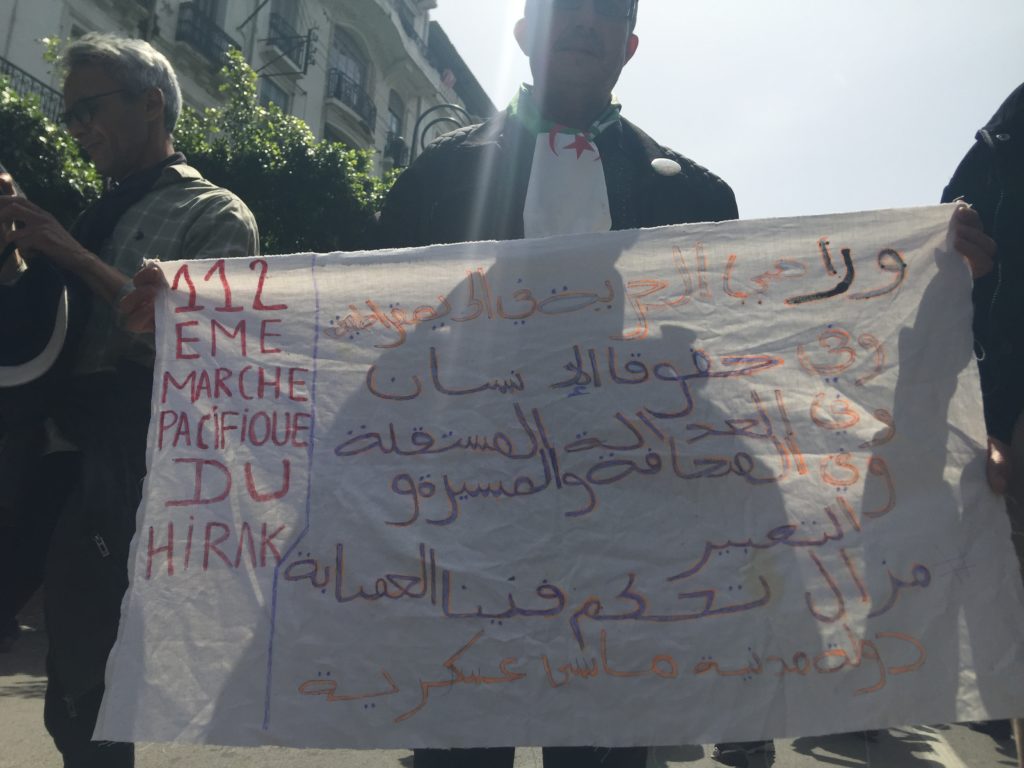 112
EME
MARCHE
PACIFIQUE
DU
HIRAK
وراهي الحرية في الديمقراطية
وفي حقوق الإنسان
وفي العدالة المستقلة
وفي الصحافة والمسيرة و
التعبير
مزال تحكم فينا العصابة
دولة مدنية ماسي عسكرية